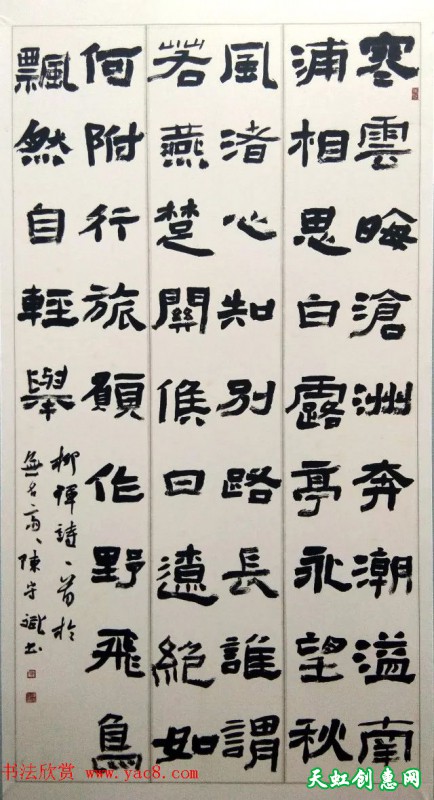 寒雲晦滄洲奔潮溢南
浦相思白露亭永望秋
風渚心知別路長誰謂
若燕楚關候日遼絕如
何附行旅願作野飛鳥
飄然自輕舉
柳惲詩一首於
陳守
书
书法欣赏 www.yac8.com
天虹创惠网